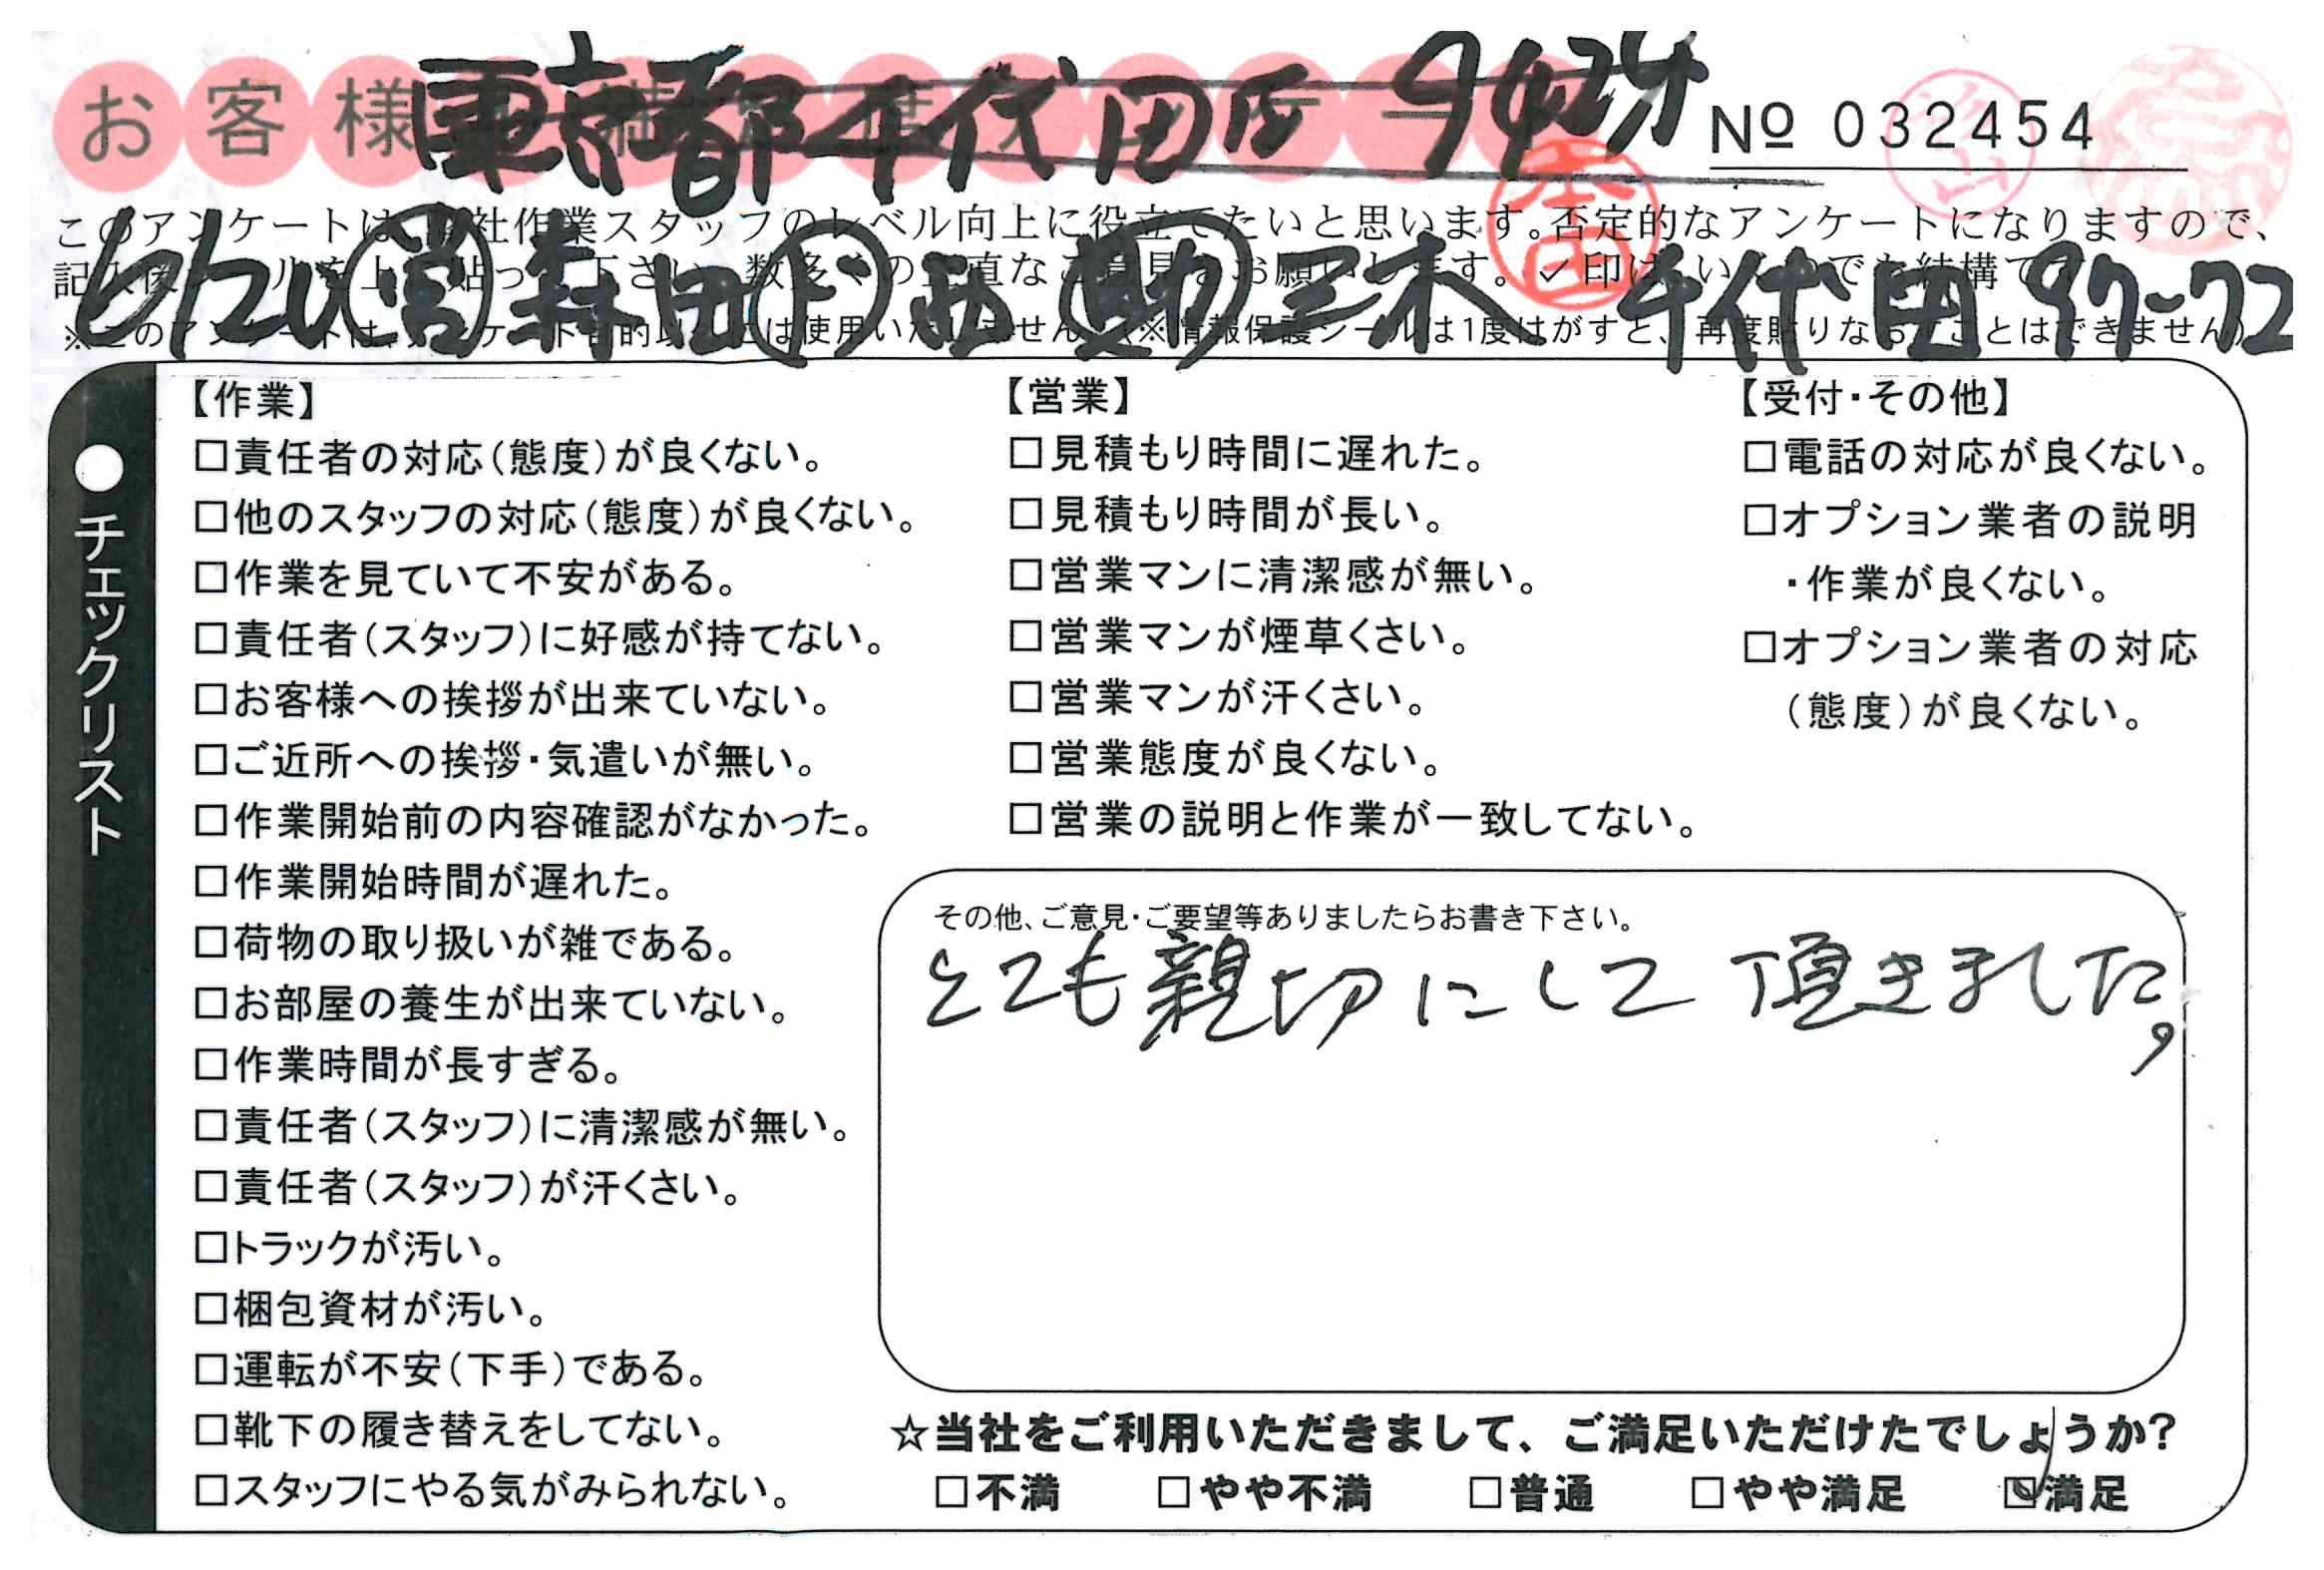 お客様
東京都千代田区
№ 032454
このアンケートは、社作業スタッフのレベル向上に役立てたいと思います。否定的なアンケートになりますので、
6/20 営 森田 ド 西 助 三木 千代田 97-72
【作業】
□責任者の対応(態度)が良くない。
□他のスタッフの対応(態度)が良くない。
□作業を見ていて不安がある。
□責任者(スタッフ)に好感が持てない。
□お客様への挨拶が出来ていない。
□ご近所への挨拶・気遣いが無い。
□作業開始前の内容確認がなかった。
□作業開始時間が遅れた。
□荷物の取り扱いが雑である。
□お部屋の養生が出来ていない。
□作業時間が長すぎる。
□責任者(スタッフ)に清潔感が無い。
□責任者(スタッフ)が汗くさい。
□トラックが汚い。
□梱包資材が汚い。
□運転が不安(下手)である。
□靴下の履き替えをしてない。
□スタッフにやる気がみられない。
【営業】
□見積もり時間に遅れた。
□見積もり時間が長い。
□営業マンに清潔感が無い。
□営業マンが煙草くさい。
□営業マンが汗くさい。
□営業態度が良くない。
□営業の説明と作業が一致してない。
【受付・その他】
□電話の対応が良くない。
□オプション業者の説明
・作業が良くない。
□オプション業者の対応
(態度)が良くない。
●チェックリスト
その他、ご意見・ご要望等ありましたらお書き下さい。
とても親切にして頂きました。
☆当社をご利用いただきまして、ご満足いただけたでしょうか?
□不満 □やや不満 □普通 □やや満足 ☑満足
本田